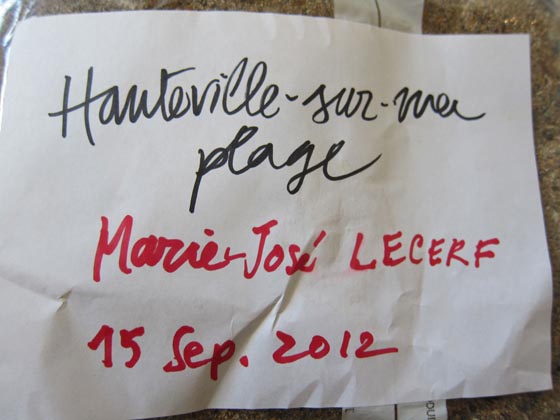 Hauteville-sur-mer
plage
Marie-José LECERF
15 Sep. 2012